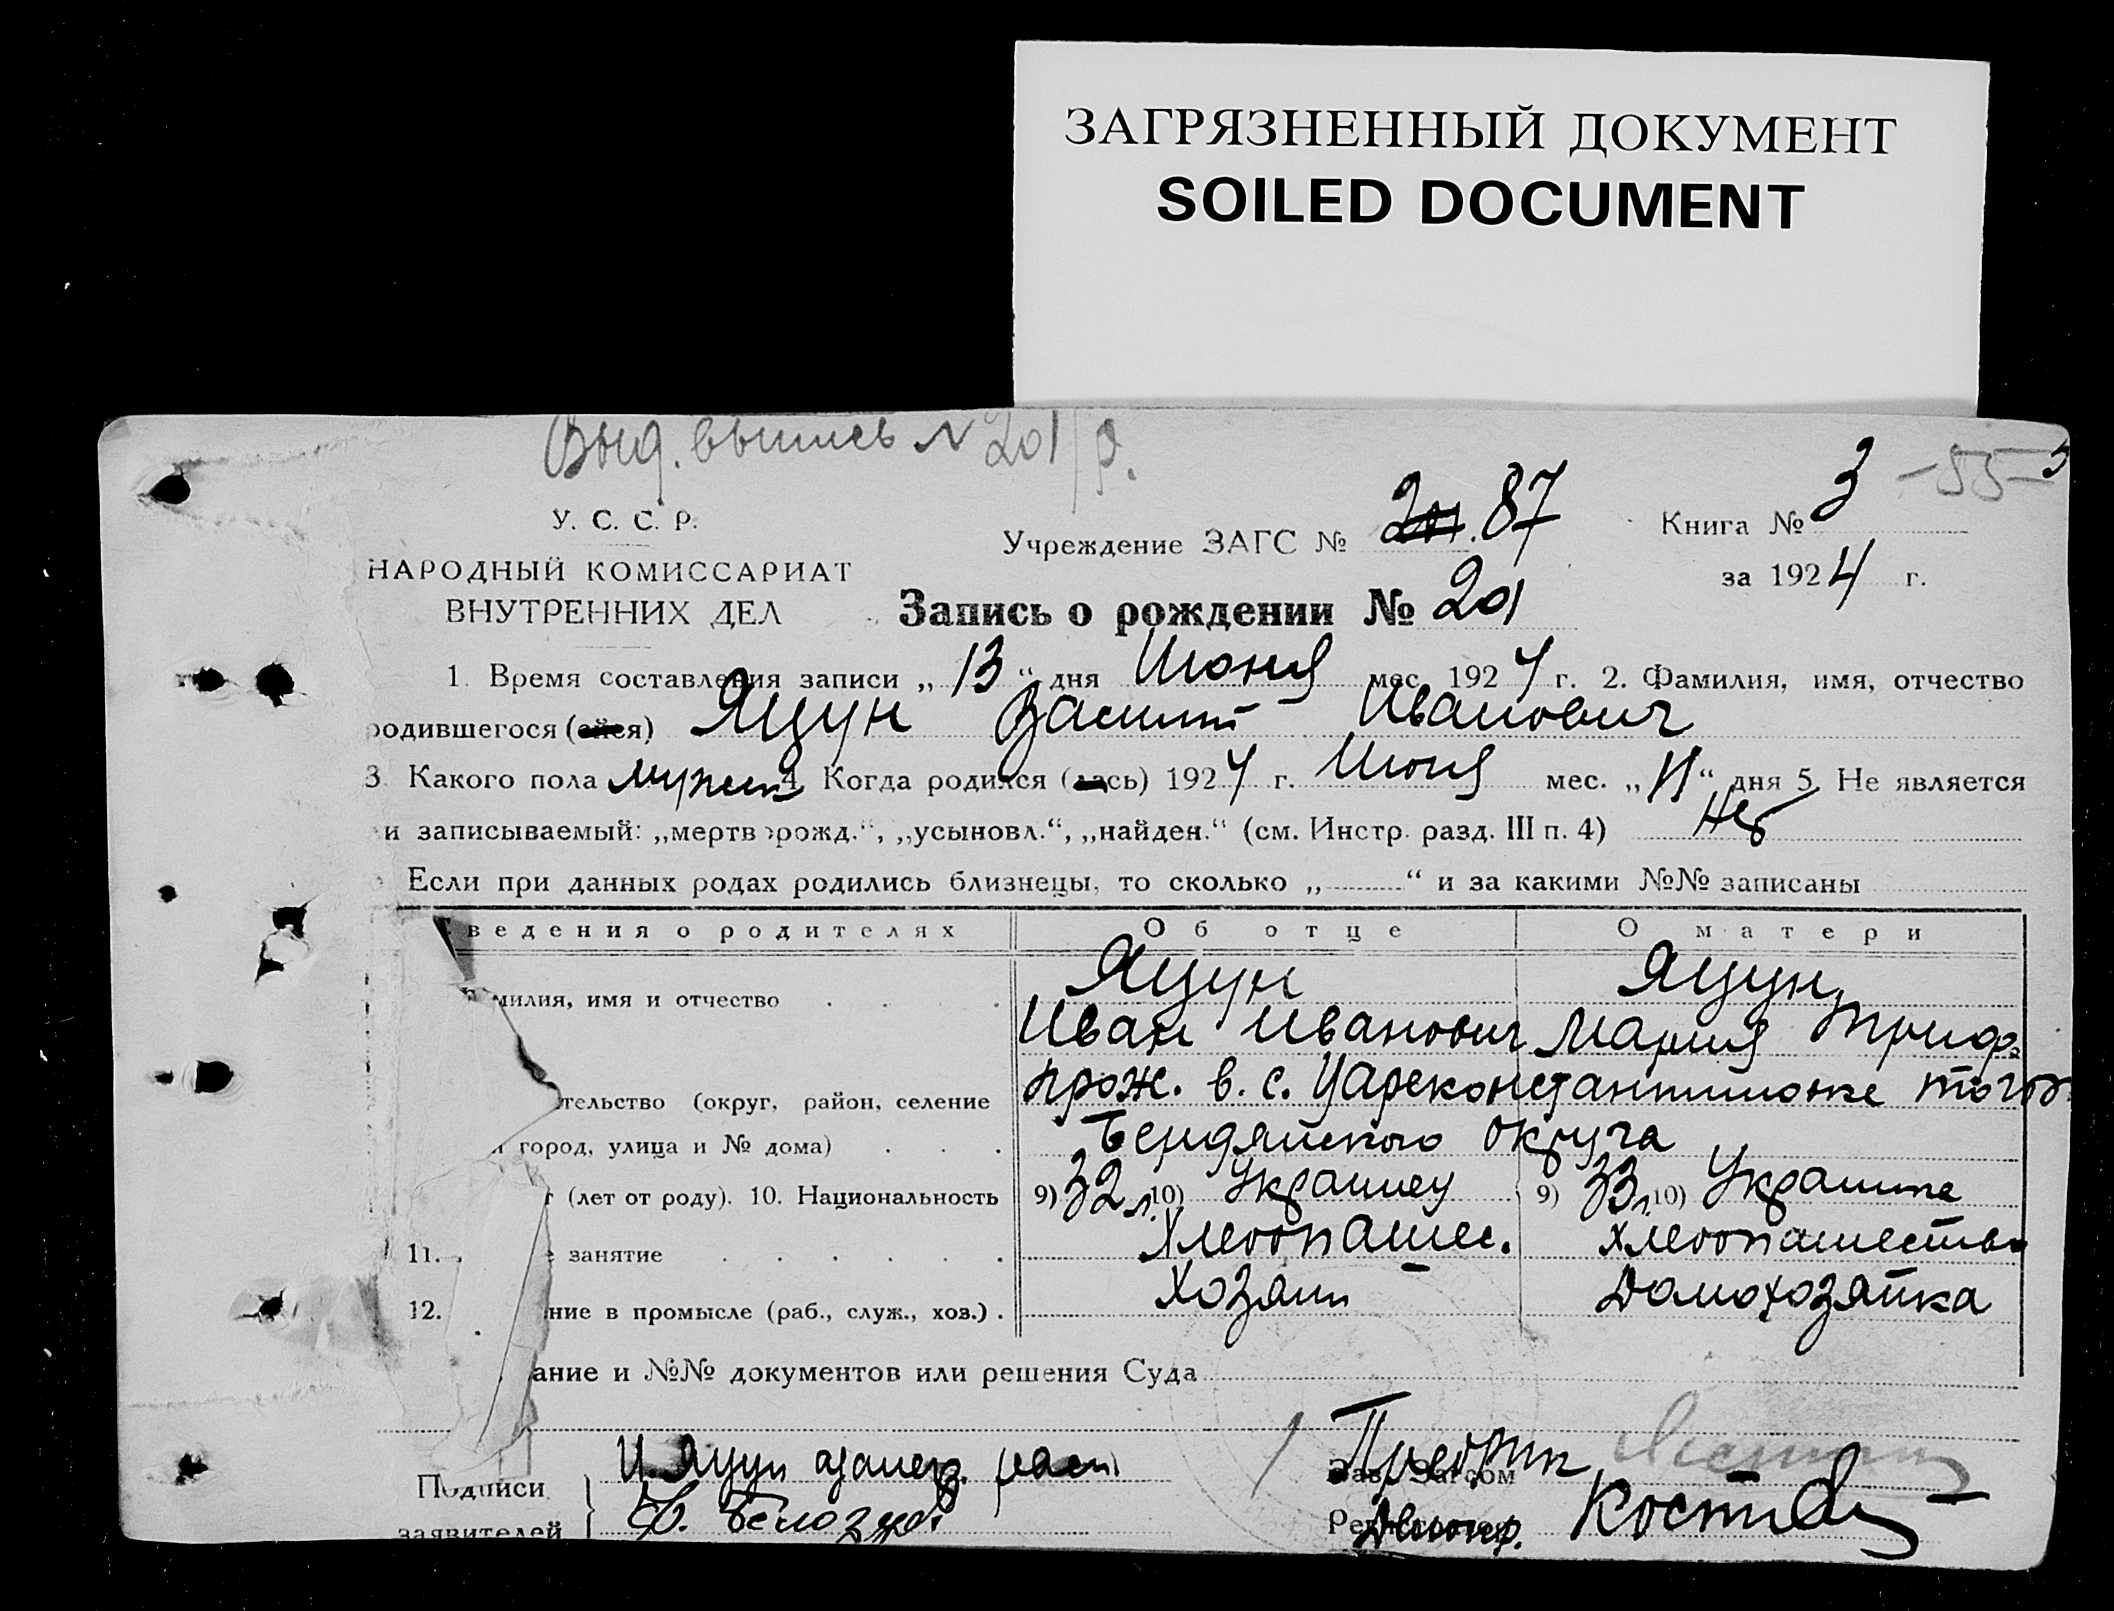 ЗАГРЯЗНЕННЫЙ ДОКУМЕНТ
SOILED DOCUMENT
Выд. выпись N 201/р.
3 -55-
У. С. С. Р.
Учреждение ЗАГС № 201. 87
Книга №
НАРОДНЫЙ КОМИССАРИАТ
за 1924 г.
ВНУТРЕННИХ ДЕЛ
Запись о рождении № 201
1. Время составления записи „13“ дня Июня мес 1924 г. 2. Фамилия, имя, отчество
родившегося (ейся) Яцун Василий Иванович
3 Какого пола мужск 4. Когда родился (лась) 1924 г. Июня мес. „11“ дня 5. Не является
и записываемый: „мертворожд.“, „усыновл.“, „найден.“ (см. Инстр. разд. III п. 4) Нет
Если при данных родах родились близнецы, то сколько „ “ и за какими №№ записаны
ведения о родителях Об отце О матери
милия, имя и отчество Яцун Яцун
Иван Иванович Мария Триф.
тельство (округ, район, селение прож. в. с. Цареконстантиновке того
город, улица и № дома) Бердянского округа
(лет от роду). 10. Национальность 9) 32 л. 10) Украинец 9) 33 л. 10) Украинка
11. занятие Хлебопашес. хлебопашество
12. ние в промысле (раб., служ., хоз.) Хозяин Домохозяйка
ание и №№ документов или решения Суда
Подписи И. Яцун
Зав. Загсом
заявителей